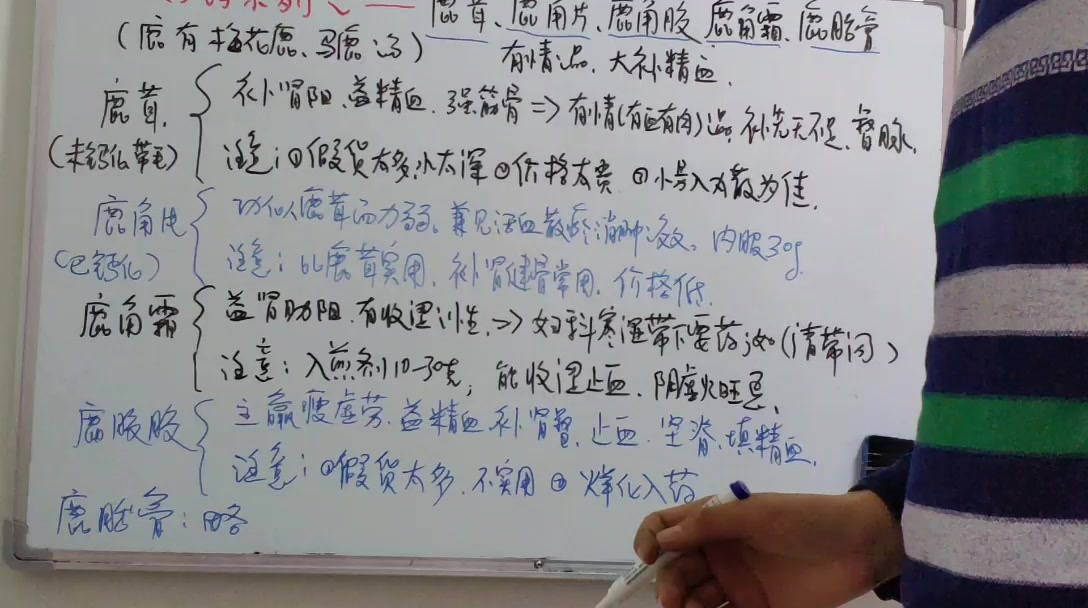 系列 — 鹿茸、鹿角片、鹿角胶 鹿角霜、鹿胎膏
(鹿有梅花鹿、马鹿 ) 有情品、大补精血、
鹿茸、 补肾阳、益精血、强筋骨 => 有情(有血有肉)品、补先天不足、督脉、
(未钙化带毛) 注意:①假货太多,水太深 ②价格太贵 ③小号入丸散为佳、
鹿角片 功似鹿茸而力弱、兼见活血散瘀消肿之效、内服30g
(已钙化) 注意:比鹿茸实用、补肾健骨常用、价格低、
鹿角霜 益肾助阳、有收涩性、=> 妇科寒湿带下要药 (清带汤)
注意:入煎剂10-30克, 能收涩止血、阴虚火旺忌、
主羸瘦虚劳、益精血、补肾督、止血、坚脊、填精血、
注意:①假货太多、不实用 ② 烊化入药
鹿胎膏:略